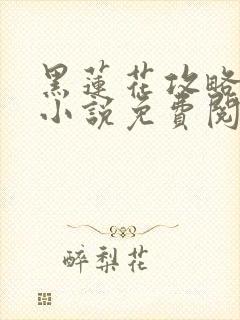 黑蓮花攻略
小說免費閱
醉梨花